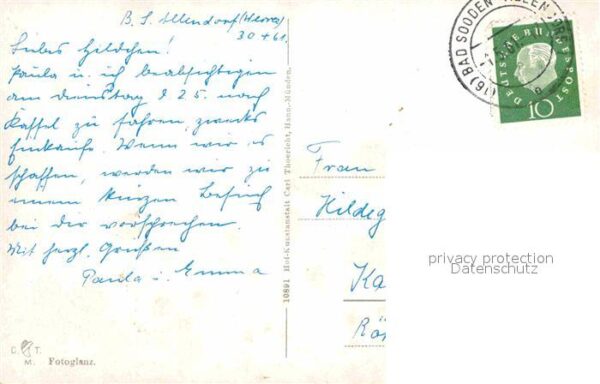 B. S. Allendorf (Werra)
30 4 61.
Liebes Hildchen!
Paula u. ich beabsichtigen
am Dienstag d 2 5. nach
Kassel zu fahren, zwecks
Einkäufe. Wenn wir es
schaffen, werden wir zu
einem kurzen Besuch
bei dir vorsprechen.
Mit herzl. Grüßen
Paula u. Emma
C. T.
M. Fotoglanz.
10891 Hof-Kunstanstalt Carl Thoericht, Hann.-Münden.
(16) BAD SOODEN-ALLENDORF
DEUTSCHE BUNDESPOST
10
Frau
Hildeg
Ka
Rö
privacy protection
Datenschutz